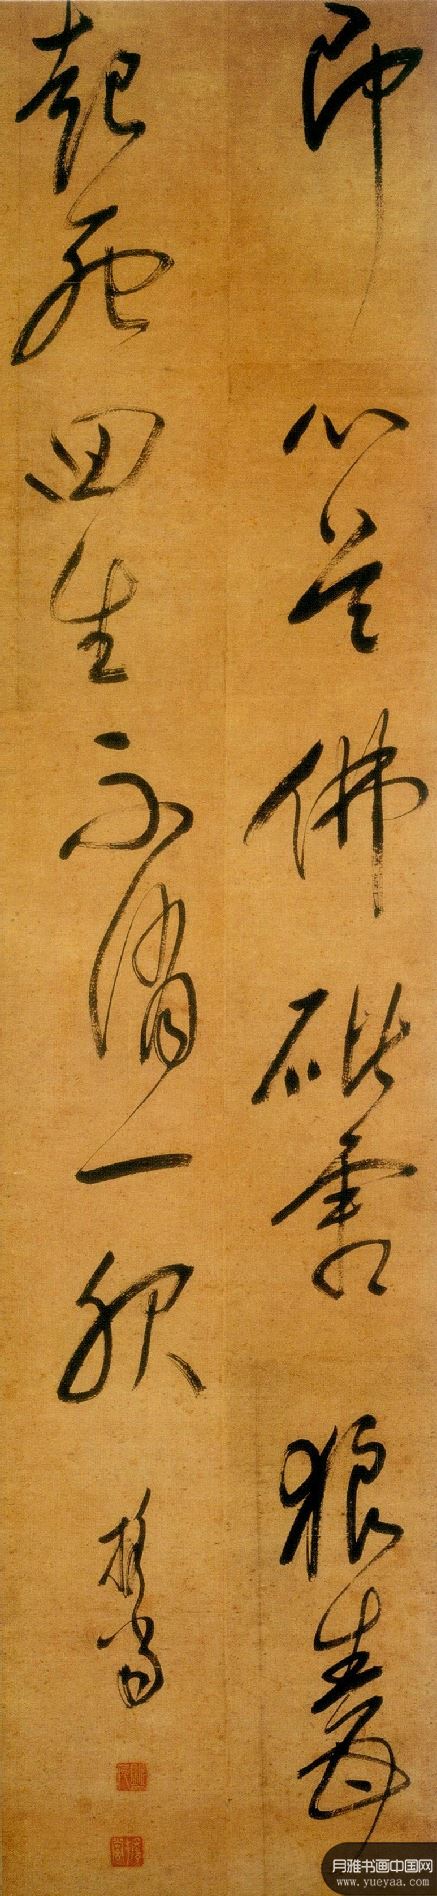 即心是佛砒霜狼毒
起死回生不消一服
擔當
月雅书画中国网
www.yueyaa.com